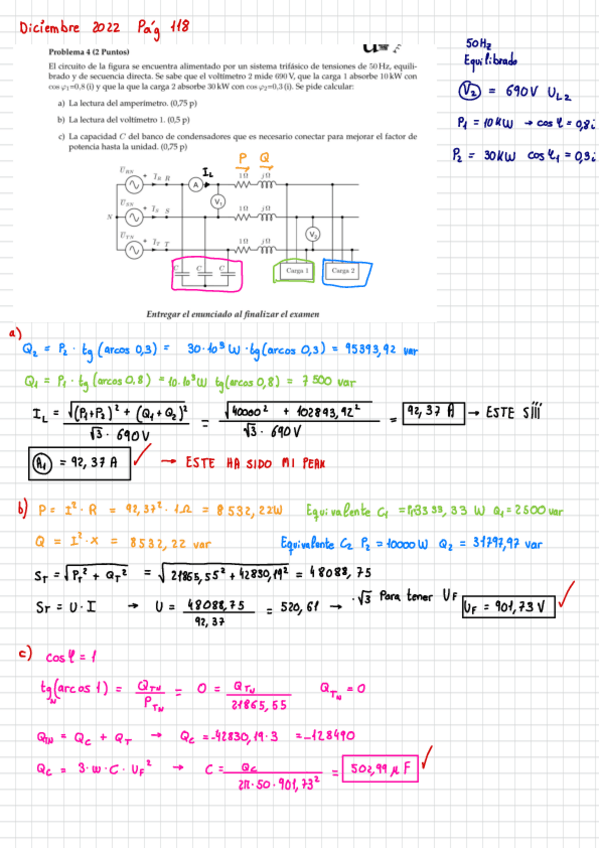 Diciembre 2022 Pág 118
Problema 4 (2 Puntos)
El circuito de la figura se encuentra alimentado por un sistema trifásico de tensiones de 50 Hz, equili-
brado y de secuencia directa. Se sabe que el voltímetro 2 mide 690 V, que la carga 1 absorbe 10 kW con
cos φ₁=0,8 (i) y que la que la carga 2 absorbe 30 kW con cos φ₂=0,3 (i). Se pide calcular:
a) La lectura del amperímetro. (0,75 p)
b) La lectura del voltímetro 1. (0,5 p)
c) La capacidad C del banco de condensadores que es necesario conectar para mejorar el factor de
potencia hasta la unidad. (0,75 p)
50Hz
Equilibrado
V₂ = 690V U_L2
P₁ = 10kW → cos φ = 0,8i
P₂ = 30KW cos φ₁ = 0,3i
P Q
U_RN + I_R R A I_L 1Ω jΩ
V₁
U_SN + I_S S 1Ω jΩ
N
V₂
U_TN + I_T T 1Ω jΩ
C C C
Carga 1 Carga 2
Entregar el enunciado al finalizar el examen
a)
Q₂ = P₂ · tg (arcos 0,3) = 30·10³ W · tg (arcos 0,3) = 95393,92 var
Q₁ = P₁ · tg (arcos 0,8) = 10·10³ W tg (arcos 0,8) = 7500 var
I_L = √((P₁+P₂)² + (Q₁+Q₂)²) / (√3 · 690V) = √(40000² + 102893,92²) / (√3 · 690V) = 92,37 A → ESTE SÍÍÍ
A₁ = 92,37 A → ESTE HA SIDO MI PEAK
b) P = I² · R = 92,37² · 1Ω = 8532,22W Equivalente C₁ = P₁ 3333,33 W Q₁ = 2500 var
Q = I² · X = 8532,22 var Equivalente C₂ P₂ = 10000W Q₂ = 31797,97 var
S_T = √(P_T² + Q_T²) = √(21865,55² + 42830,19²) = 48088,75
S_T = U · I → U = 48088,75 / 92,37 = 520,61 → ·√3 Para tener U_F U_F = 901,73 V
c) cos φ = 1
tg (arcos 1) = Q_TN / P_TN = 0 = Q_TN / 21865,55 Q_TN = 0
Q_TN = Q_C + Q_T → Q_C = -42830,19 · 3 = -128490
Q_C = 3·w·C·U_F² → C = Q_C / (2π · 50 · 901,73²) = 502,99 μF